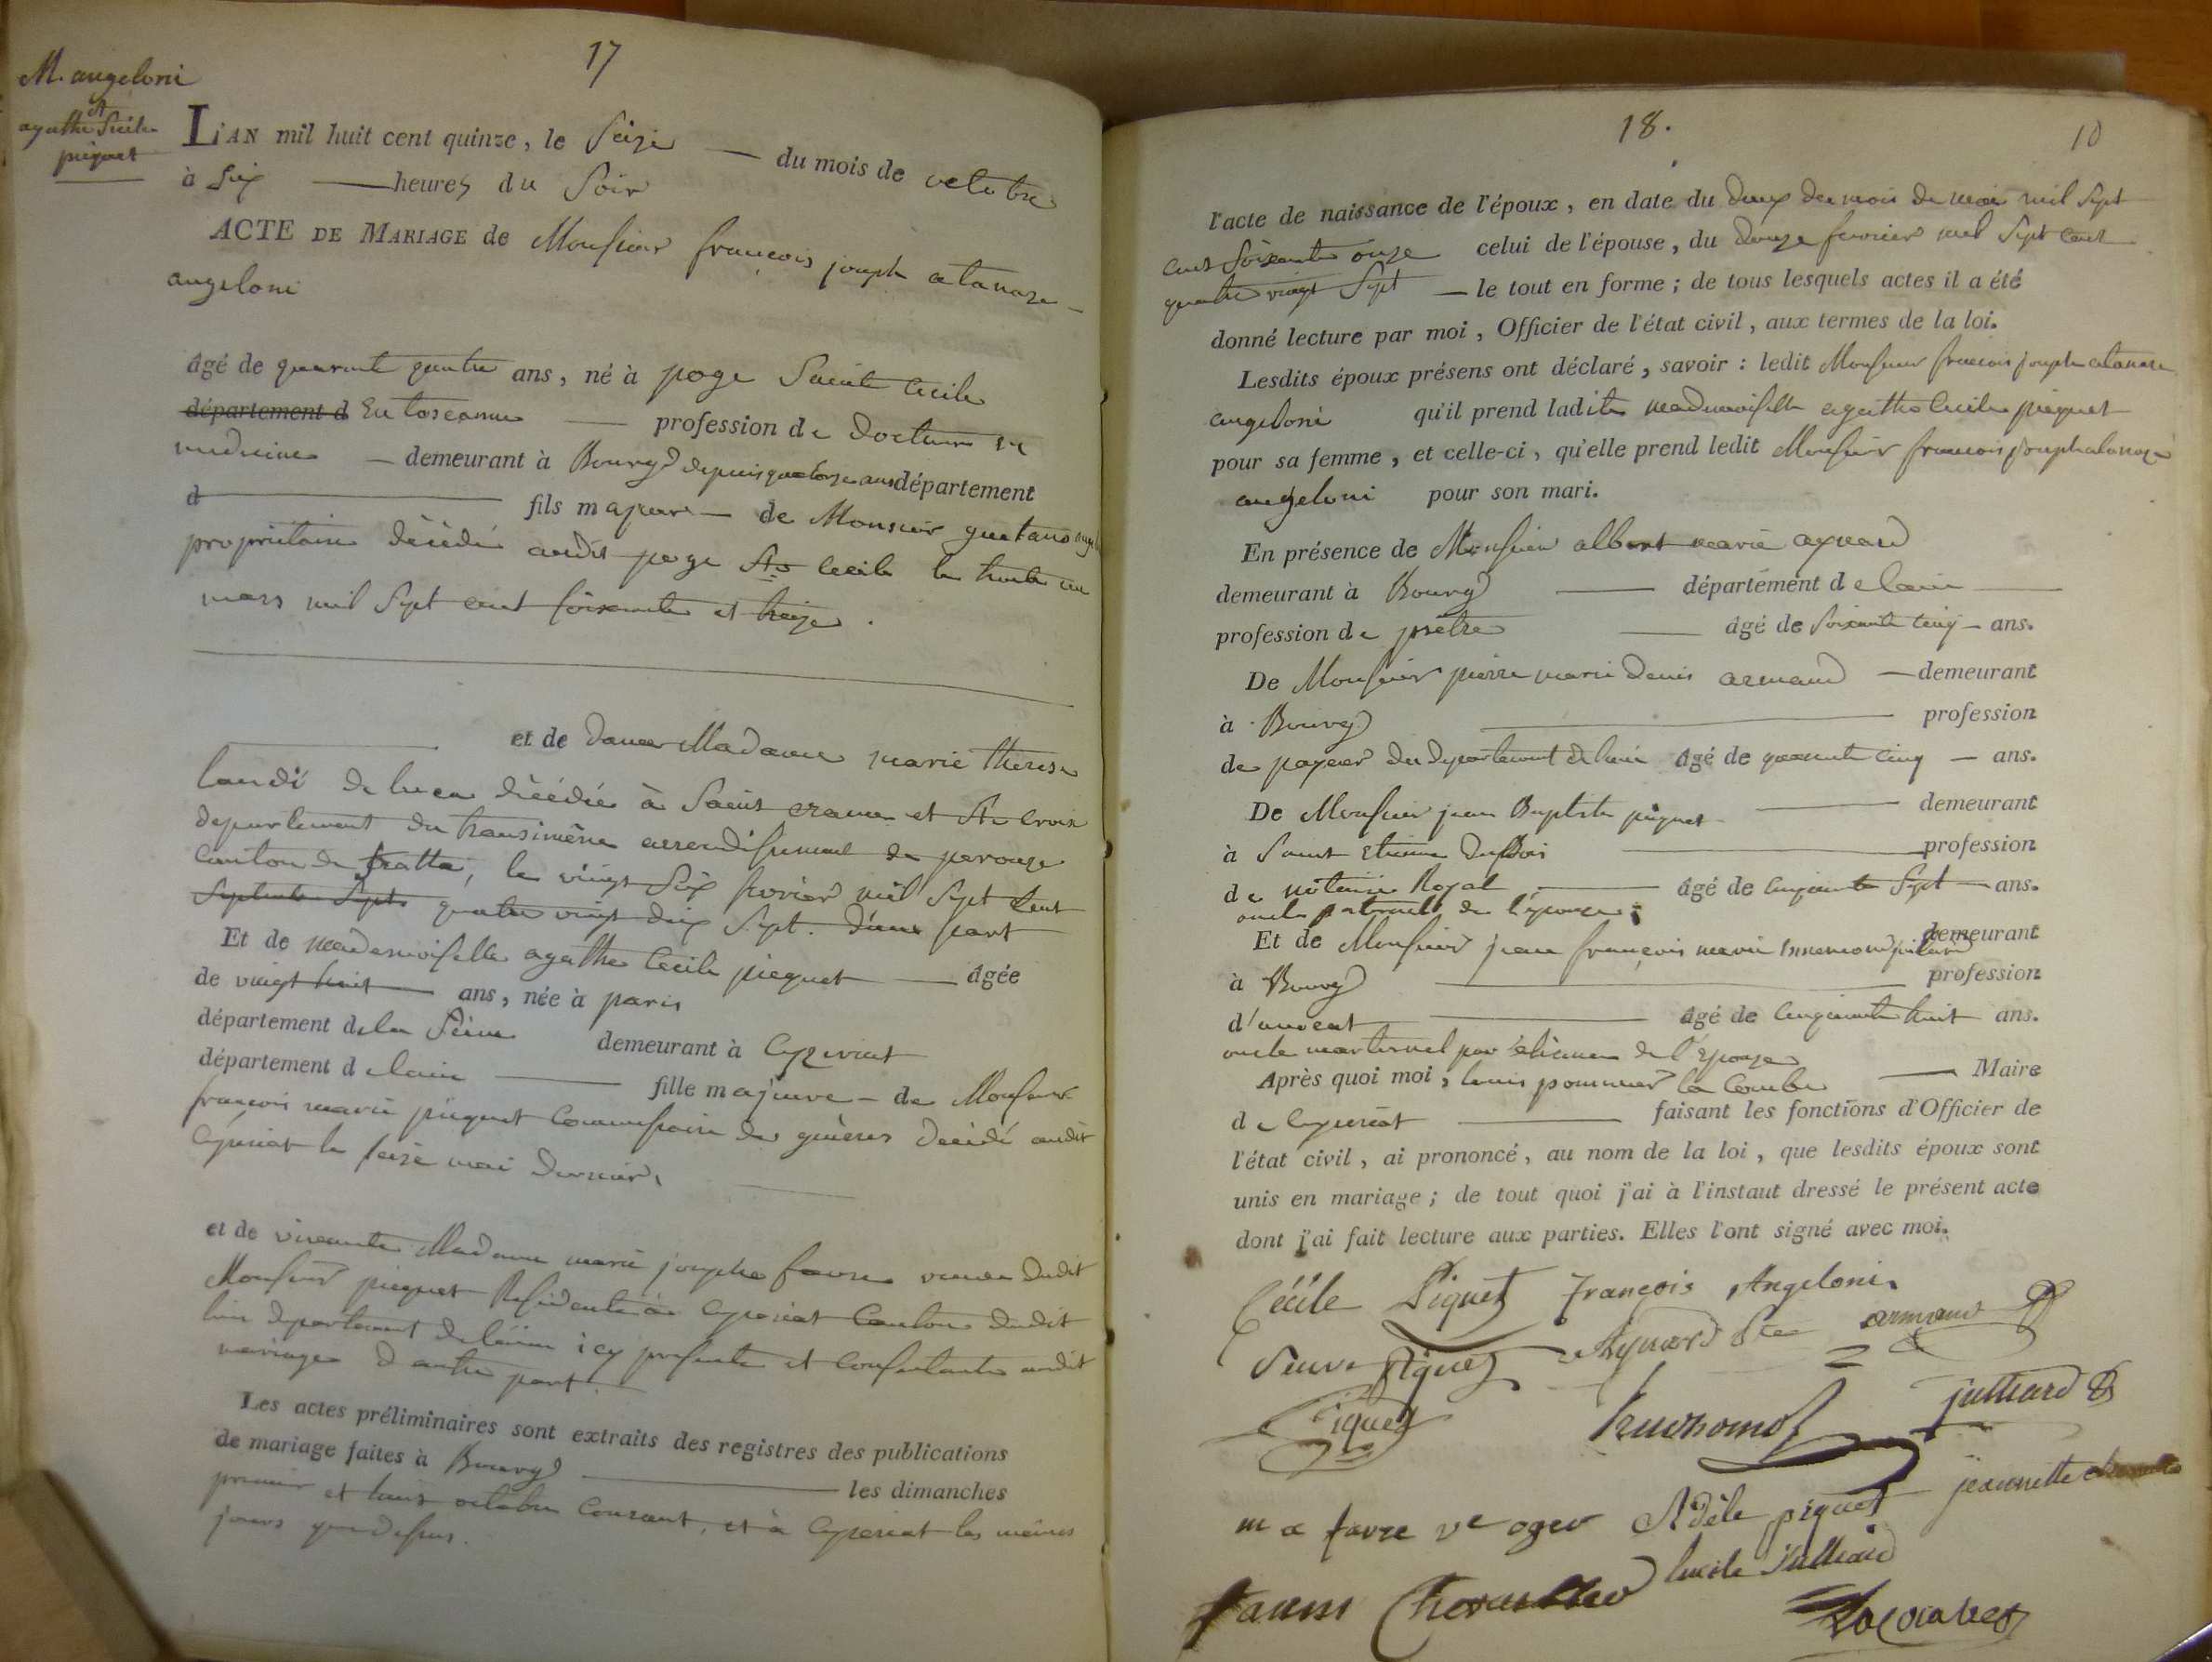 17
M. angeloni
et
agathe Sicile
piquet
L'AN mil huit cent quinze, le Seize — du mois de octobre
à Six — heures du Soir
ACTE DE MARIAGE de Monsieur françois joseph atanaze
angeloni
âgé de quarante quatre ans, né à poge Sainte Cecile
département d En toscanne — profession de docteur en
medecine — demeurant à Bourg depuis quatorze ans département
d — fils majeur — de Monsieur gaetano
propriétaire décédé audit poge Ste Cecile le trente un
mars mil Sept cent soixante et treize.
et de dame Madame marie therese
landi de luca décédée à Saint erame et Ste Croix
departement du transimène arrondissement de perouze
Canton de fratta, le vingt Six fevrier mil Sept Cent
Septante Sept. quatre vingt dix Sept. d'une part
Et de mademoiselle agathe Cecile piequet — âgée
de vingt huit — ans, née à paris
département de la Seine demeurant à Ceyzeriat
département d e lain — fille majeure — de Monsieur
françois marie piequet Commissaire des guères décédé audit
Ceyzeriat le seize mai dernier.
et de vivante Madame marie josephe favre veuve dudit
Monsieur piequet Residente à Ceyzeriat Canton dudit
lieu departement de l'ain icy presente et Consentante audit
mariage d'autre part.
Les actes préliminaires sont extraits des registres des publications
de mariage faites à Bourg — les dimanches
premier et huit octobre Courant, et à Ceyzeriat les mêmes
jours que dessus.
18.
10
l'acte de naissance de l'époux, en date du deux du mois de mai mil Sept
cent Soixante onze celui de l'épouse, du douze fevrier mil Sept cent
quatre vingt Sept — le tout en forme ; de tous lesquels actes il a été
donné lecture par moi, Officier de l'état civil, aux termes de la loi.
Lesdits époux présens ont déclaré, savoir : ledit Monsieur françois joseph atanaze
angeloni qu'il prend ladite mademoiselle agathe Cecile piequet
pour sa femme, et celle-ci, qu'elle prend ledit Monsieur françois joseph atanaze
angeloni pour son mari.
En présence de Monsieur albert marie aynard
demeurant à Bourg — département d e lain —
profession de prêtre — âgé de soixante cinq — ans.
De Monsieur pierre marie denis armand — demeurant
à Bourg — profession
de payeur du departement de l'ain âgé de quarante cinq — ans.
De Monsieur jean Baptiste piquet — demeurant
à Saint etienne du Bois — profession
de notaire Royal — âgé de cinquante Sept — ans.
oncle paternel de l'epouse ;
Et de Monsieur jean françois marie juliard demeurant
à Bourg — profession
d'avocat — âgé de cinquante huit ans.
oncle maternel par aliance de l'epouze
Après quoi moi, louis pommier la Combe — Maire
d e Ceyzeriat — faisant les fonctions d'Officier de
l'état civil, ai prononcé, au nom de la loi, que lesdits époux sont
unis en mariage ; de tout quoi j'ai à l'instaut dressé le présent acte
dont j'ai fait lecture aux parties. Elles l'ont signé avec moi.
Cécile Piquet François Angeloni.
Veuve Piquet Aynard Ptre armand
Piquet julliard
m a favre ve oger Adèle piquet jeannette
lucile Julliard
Lacombe